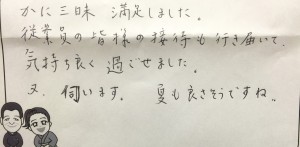 かに三昧 満足しました。
従業員の皆様の接待も行き届いて、
気持ち良く過ごせました。
又、伺います。 夏も良さそうですね。